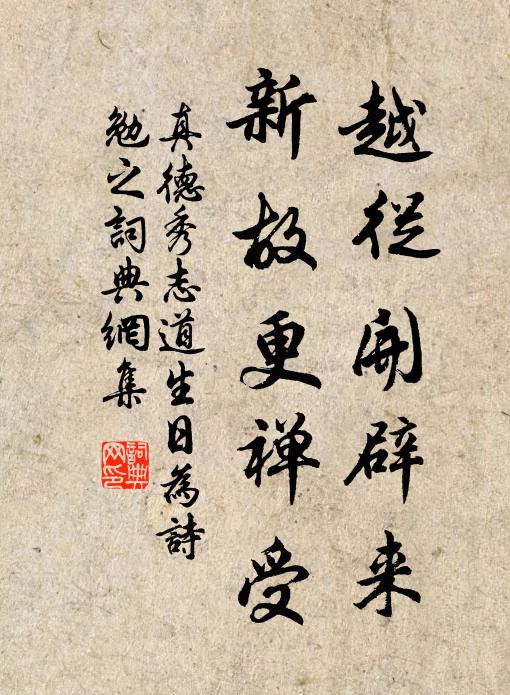 越從開辟来
新故更禅受
真德秀志道生日為詩
勉之詞典網集
詞典
网印